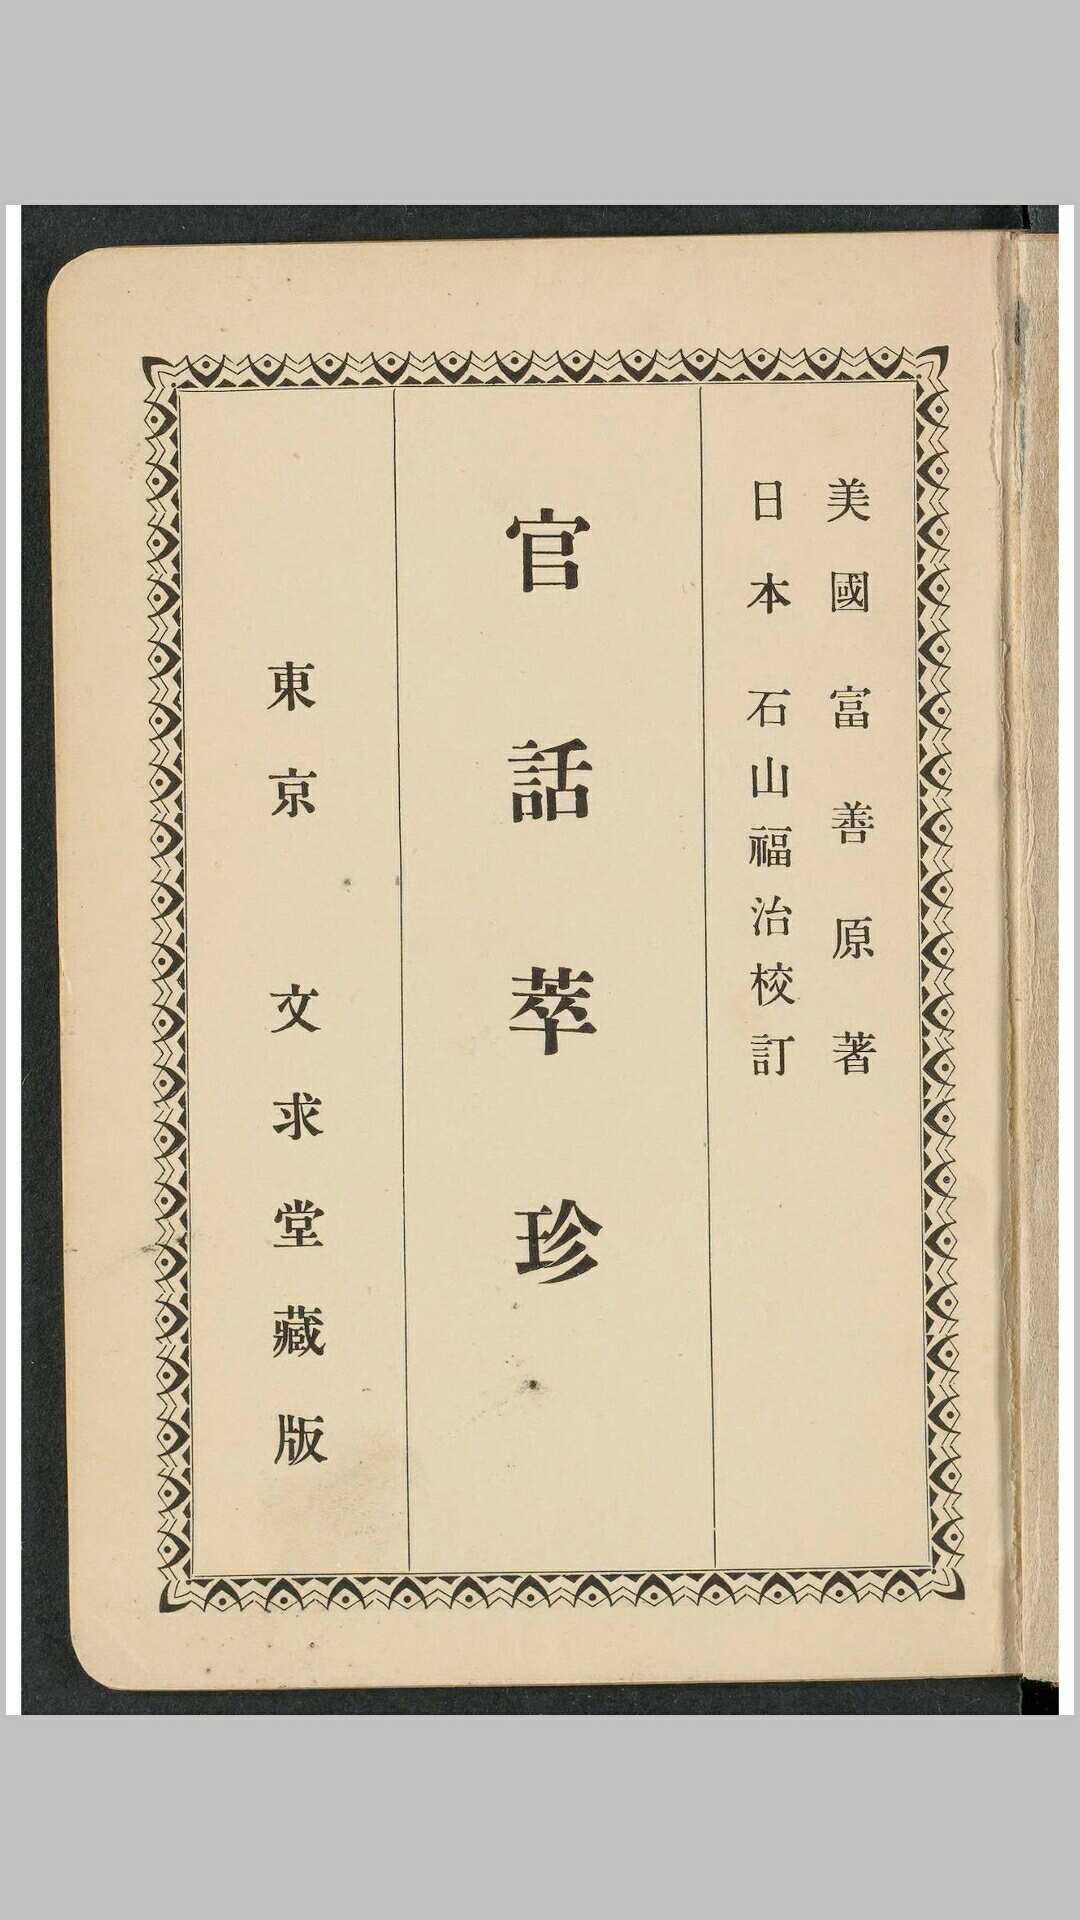 美國富善原著
日本石山福治校訂
官話萃珍
東京 文求堂藏版